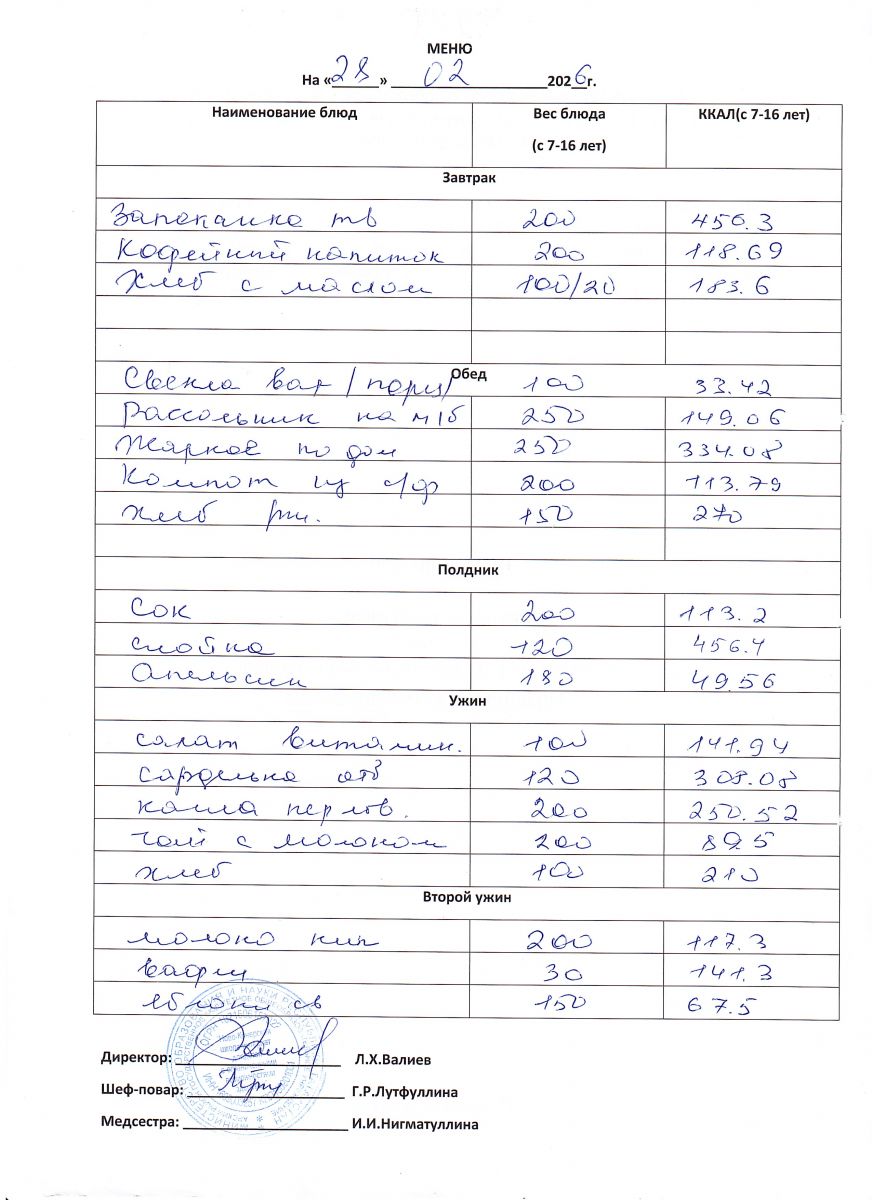 МЕНЮ
На «28» 02 2026г.
Наименование блюд Вес блюда (с 7-16 лет) ККАЛ(с 7-16 лет)
Завтрак
Запеканка тв 200 456.3
Кофейный напиток 200 118.69
Хлеб с маслом 100/20 183.6
Обед
Свекла вар/порц/ 100 33.42
Рассольник на м/б 250 149.06
Жаркое по дом 250 334.08
Компот из с/ф 200 113.79
хлеб рж. 150 270
Полдник
Сок 200 113.2
слойка 120 456.4
Апельсин 180 49.56
Ужин
салат витамин. 100 141.94
сарделька отв 120 308.08
каша перлов. 200 250.52
чай с молоком 200 89.5
хлеб 100 210
Второй ужин
молоко кип 200 117.3
вафли 30 141.3
яблоки св 150 67.5
Директор: Л.Х.Валиев
Шеф-повар: Г.Р.Лутфуллина
Медсестра: И.И.Нигматуллина